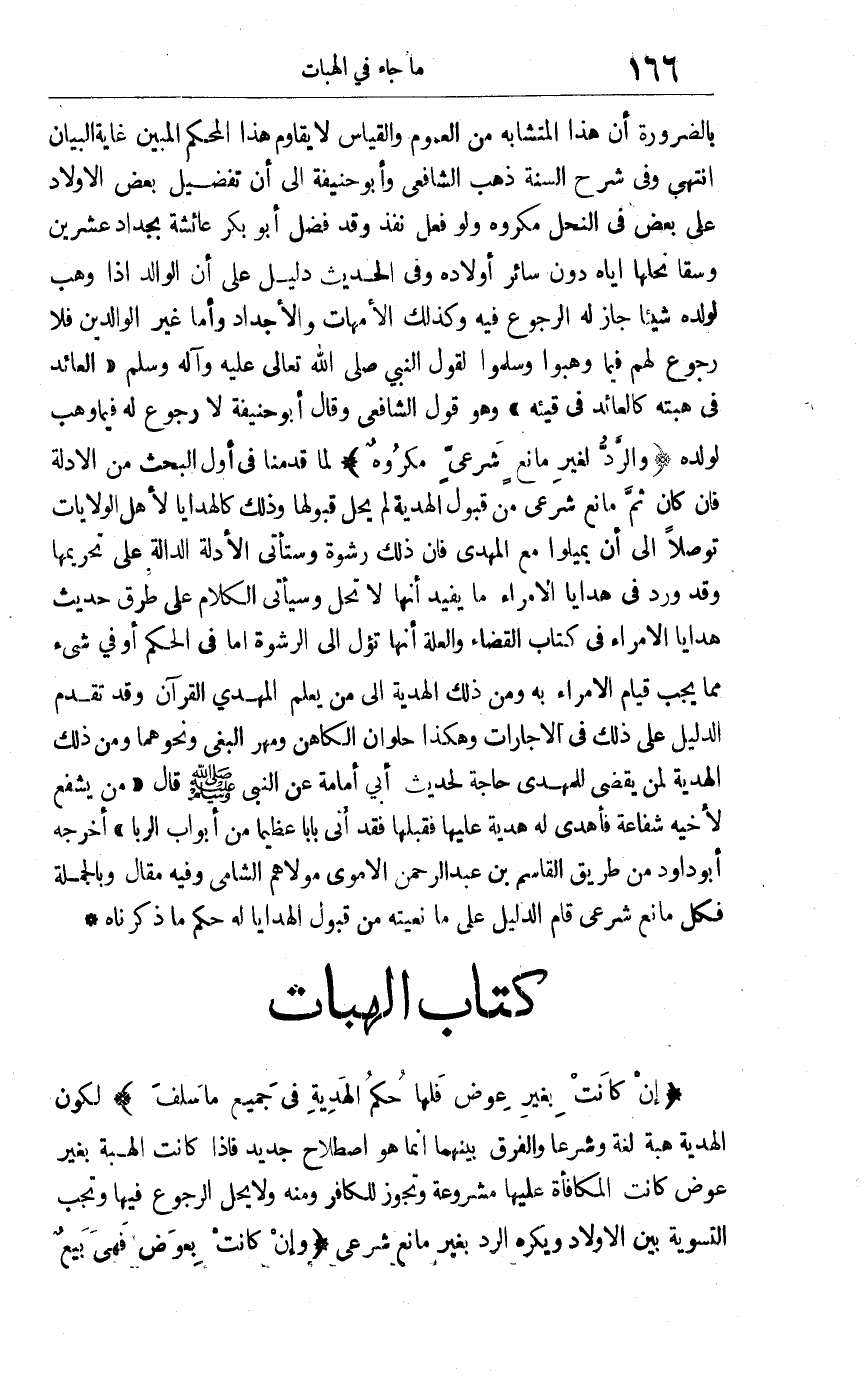 ١٦٦ ما جاء في الهبات
بالضرورة أن هذا المتشابه من العموم والقياس لا يقاوم هذا المحكم المبين غاية البيان
انتهي وفى شرح السنة ذهب الشافعى وأبو حنيفة الى أن تفضيل بعض الاولاد
على بعض فى النحل مكروه ولو فعل نفذ وقد فضل أبو بكر عائشة بجداد عشرين
وسقا نحلها اياه دون سائر أولاده وفى الحديث دليل على أن الوالد اذا وهب
لولده شيئا جاز له الرجوع فيه وكذلك الأمهات والأجداد وأما غير الوالدين فلا
رجوع لهم فيما وهبوا وسلموا لقول النبي صلى الله تعالى عليه وآله وسلم « العائد
فى هبته كالعائد فى قيئه » وهو قول الشافعى وقال أبو حنيفة لا رجوع له فيما وهب
لولده ﴿ والرَّدُّ لغيرِ مانعٍ شَرعىٍّ مكرُوهٌ ﴾ لما قدمنا فى أول البحث من الادلة
فان كان ثمَّ مانع شرعى من قبول الهدية لم يحل قبولها وذلك كالهدايا لأهل الولايات
توصلاً الى أن يميلوا مع المهدى فان ذلك رشوة وستأتى الأدلة الدالة على تحريمها
وقد ورد فى هدايا الامراء ما يفيد أنها لا تحل وسيأتى الكلام على طرق حديث
هدايا الامراء فى كتاب القضاء والعلة أنها تؤل الى الرشوة اما فى الحكم أو في شىء
مما يجب قيام الامراء به ومن ذلك الهدية الى من يعلم المهدي القرآن وقد تقدم
الدليل على ذلك فى الاجارات وهكذا حلوان الكاهن ومهر البغى ونحوهما ومن ذلك
الهدية لمن يقضى للمهدى حاجة لحديث أبي أمامة عن النبى ﷺ قال « من يشفع
لأخيه شفاعة فأهدى له هدية عليها فقبلها فقد أتى بابا عظيما من أبواب الربا » أخرجه
أبو داود من طريق القاسم بن عبدالرحمن الاموى مولاهم الشامى وفيه مقال وبالجملة
فكل مانع شرعى قام الدليل على ما نعيته من قبول الهدايا له حكم ما ذكرناه *
كتاب الهبات
﴿ إنْ كانَتْ بِغيرِ عِوض فَلها حُكمُ الهَديةِ فى جَميع ماسلفَ ﴾ لكون
الهدية هبة لغة وشرعا والفرق بينهما انما هو اصطلاح جديد فاذا كانت الهبة بغير
عوض كانت المكافأة عليها مشروعة وتجوز للكافر ومنه ولايحل الرجوع فيها وتجب
التسوية بين الاولاد ويكره الرد بغير مانع شرعى ﴿ وإنْ كانتْ بِعوَض فَهىَ بَيعٌ